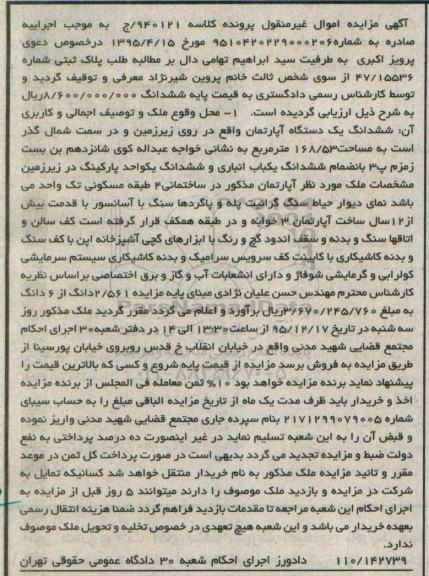 آگهی مزایده اموال غیرمنقول پرونده کلاسه ۹۴۰۱۲۱/ج به موجب اجراییه
صادره به شماره۹۵۱۰۴۲۰۲۲۹۰۰۰۲۰۶ مورخ ۱۳۹۵/۴/۱۵ درخصوص دعوی
پرویز اکبری به طرفیت سید ابراهیم تهامی دال بر مطالبه طلب پلاک ثبتی شماره
۴۷/۱۵۵۳۶ از سوی شخص ثالث خانم پروین شیرنژاد معرفی و توقیف گردید و
توسط کارشناس رسمی دادگستری به قیمت پایه ششدانگ ۸/۶۰۰/۰۰۰/۰۰۰ریال
به شرح ذیل ارزیابی گردیده است. ۱- محل وقوع ملک و توصیف اجمالی و کاربری
آن: ششدانگ یک دستگاه آپارتمان واقع در روی زیرزمین و در سمت شمال گذر
است به مساحت۱۶۸/۵۳ مترمربع به نشانی خواجه عبداله کوی شانزدهم بن بست
زمزم پ۳ بانضمام ششدانگ یکباب انباری و ششدانگ یکواحد پارکینگ در زیرزمین
مشخصات ملک مورد نظر آپارتمان مذکور در ساختمانی۴ طبقه مسکونی تک واحد می
باشد نمای دیوار حیاط سنگ گرانیت پله و پاگردها سنگ با آسانسور با قدمت بیش
از۱۲سال ساخت آپارتمان ۳ خوابه و در طبقه همکف قرار گرفته است کف سالن و
اتاقها سنگ و بدنه و سقف اندود گچ و رنگ با ابزارهای گچی آشپزخانه اپن با کف سنگ
و بدنه کاشیکاری با کابینت کف سرویس سرامیک و بدنه کاشیکاری سیستم سرمایشی
کولرابی و گرمایشی شوفاژ و دارای انشعابات آب و گاز و برق اختصاصی براساس نظریه
کارشناس محترم مهندس حسن علیان نژادی مبنای پایه مزایده ۲/۵۶۱دانگ از ۶ دانگ
به مبلغ ۳/۶۷۰/۲۴۵/۷۶۰ریال برآورد و اعلام می گردد مقرر گردید ملک مذکور روز
سه شنبه در تاریخ ۹۵/۱۲/۱۷ از ساعت۱۳:۳۰ الی ۱۴ در دفتر شعبه۳۰ اجرای احکام
مجتمع قضایی شهید مدنی واقع در خیابان انقلاب خ قدس روبروی خیابان پورسینا از
طریق مزایده به فروش برسد مزایده از قیمت پایه شروع و کسی که بالاترین قیمت را
پیشنهاد نماید برنده مزایده خواهد بود ۱۰% ثمن معامله فی المجلس از برنده مزایده
اخذ و خریدار باید ظرف مدت یک ماه از تاریخ مزایده الباقی مبلغ را به حساب سیبای
شماره ۲۱۷۱۲۹۹۰۷۹۰۰۵ بنام سپرده جاری مجتمع قضایی شهید مدنی واریز نموده
و قبض آن را به این شعبه تسلیم نماید در غیر اینصورت ده درصد پرداختی به نفع
دولت ضبط و مزایده تجدید می گردد بدیهی است در صورت پرداخت کل ثمن در موعد
مقرر و تائید مزایده ملک مذکور به نام خریدار منتقل خواهد شد کسانیکه تمایل به
شرکت در مزایده و بازدید ملک موصوف را دارند میتوانند ۵ روز قبل از مزایده به
اجرای احکام این شعبه مراجعه تا مقدمات بازدید فراهم گردد ضمنا هزینه انتقال رسمی
بعهده خریدار می باشد و این شعبه هیچ تعهدی در خصوص تخلیه و تحویل ملک موصوف
ندارد.
۱۱۰/۱۴۲۷۳۹ دادورز اجرای احکام شعبه ۳۰ دادگاه عمومی حقوقی تهران